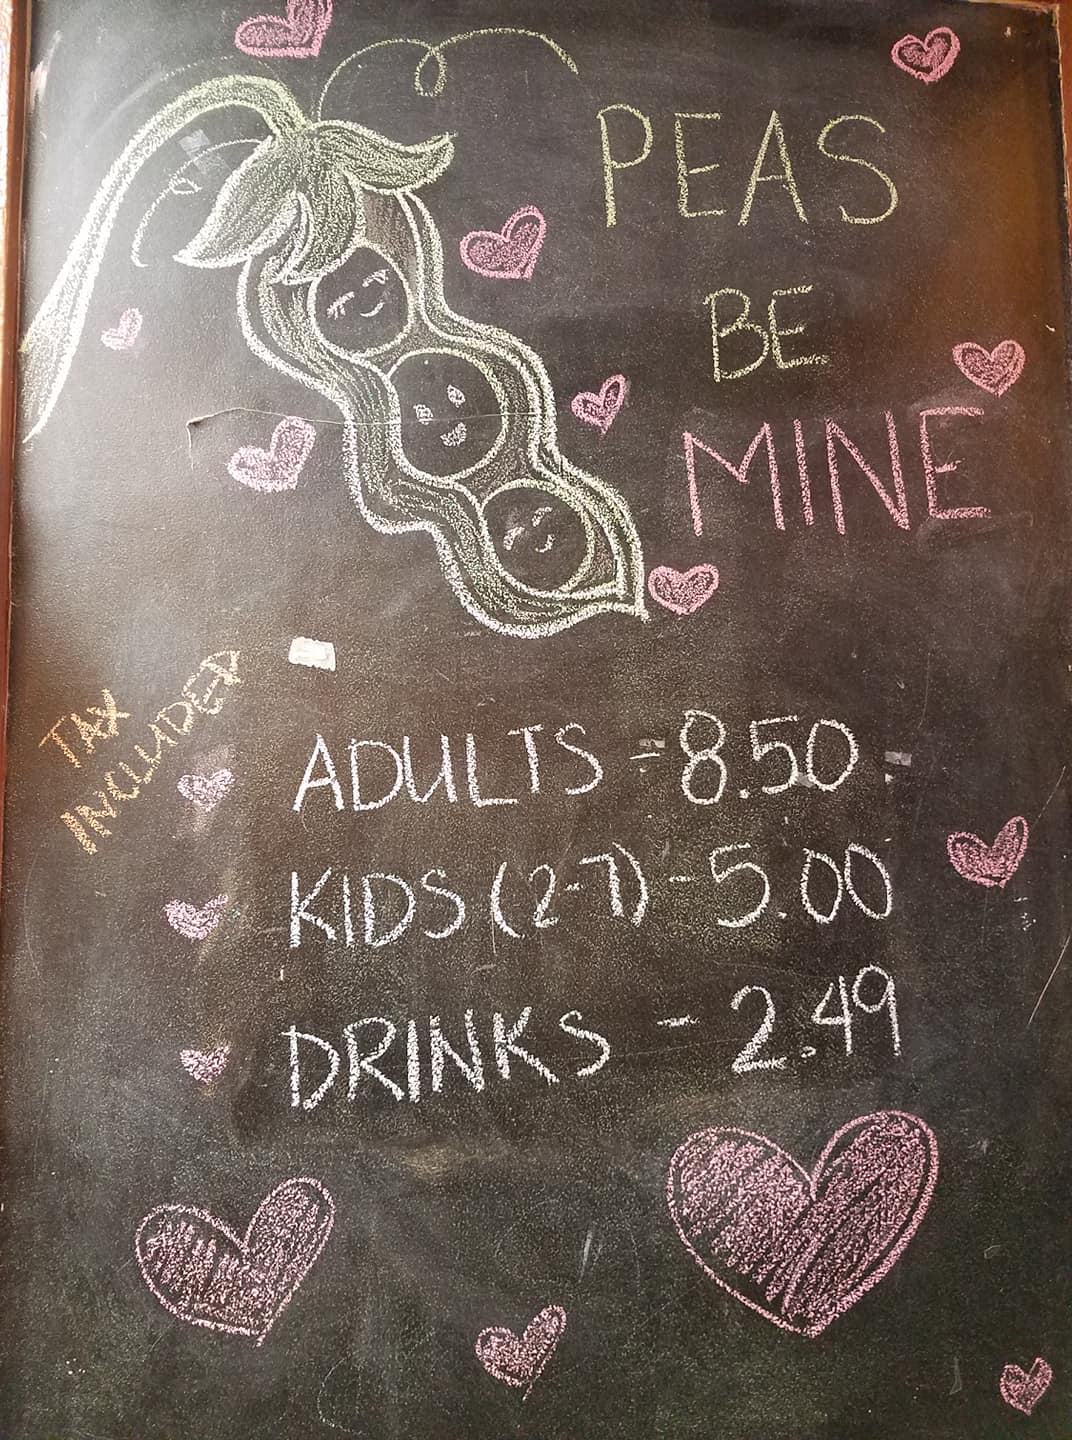 PEAS
BE
MINE
TAX
INCLUDED
ADULTS - 8.50
KIDS (2-7) - 5.00
DRINKS - 2.49